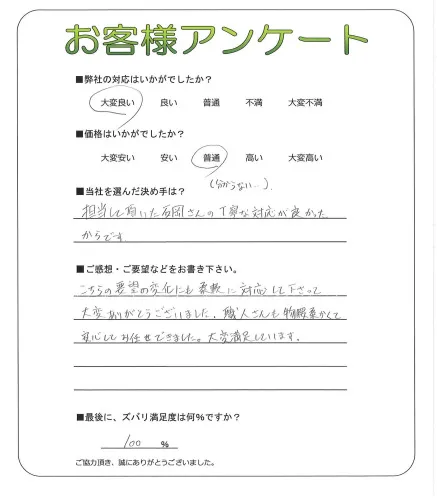 お客様アンケート
■弊社の対応はいかがでしたか?
大変良い 良い 普通 不満 大変不満
■価格はいかがでしたか?
大変安い 安い 普通 高い 大変高い
(分からない…)
■当社を選んだ決め手は?
担当して頂いた石岡さんの丁寧な対応が良かった
からです
■ご感想・ご要望などをお書き下さい。
こちらの要望の変化にも柔軟に対応して下さって
大変ありがとうございました。職人さんも物腰柔かくて
安心してお任せできました。大変満足しています。
■最後に、ズバリ満足度は何%ですか?
100 %
ご協力頂き、誠にありがとうございました。